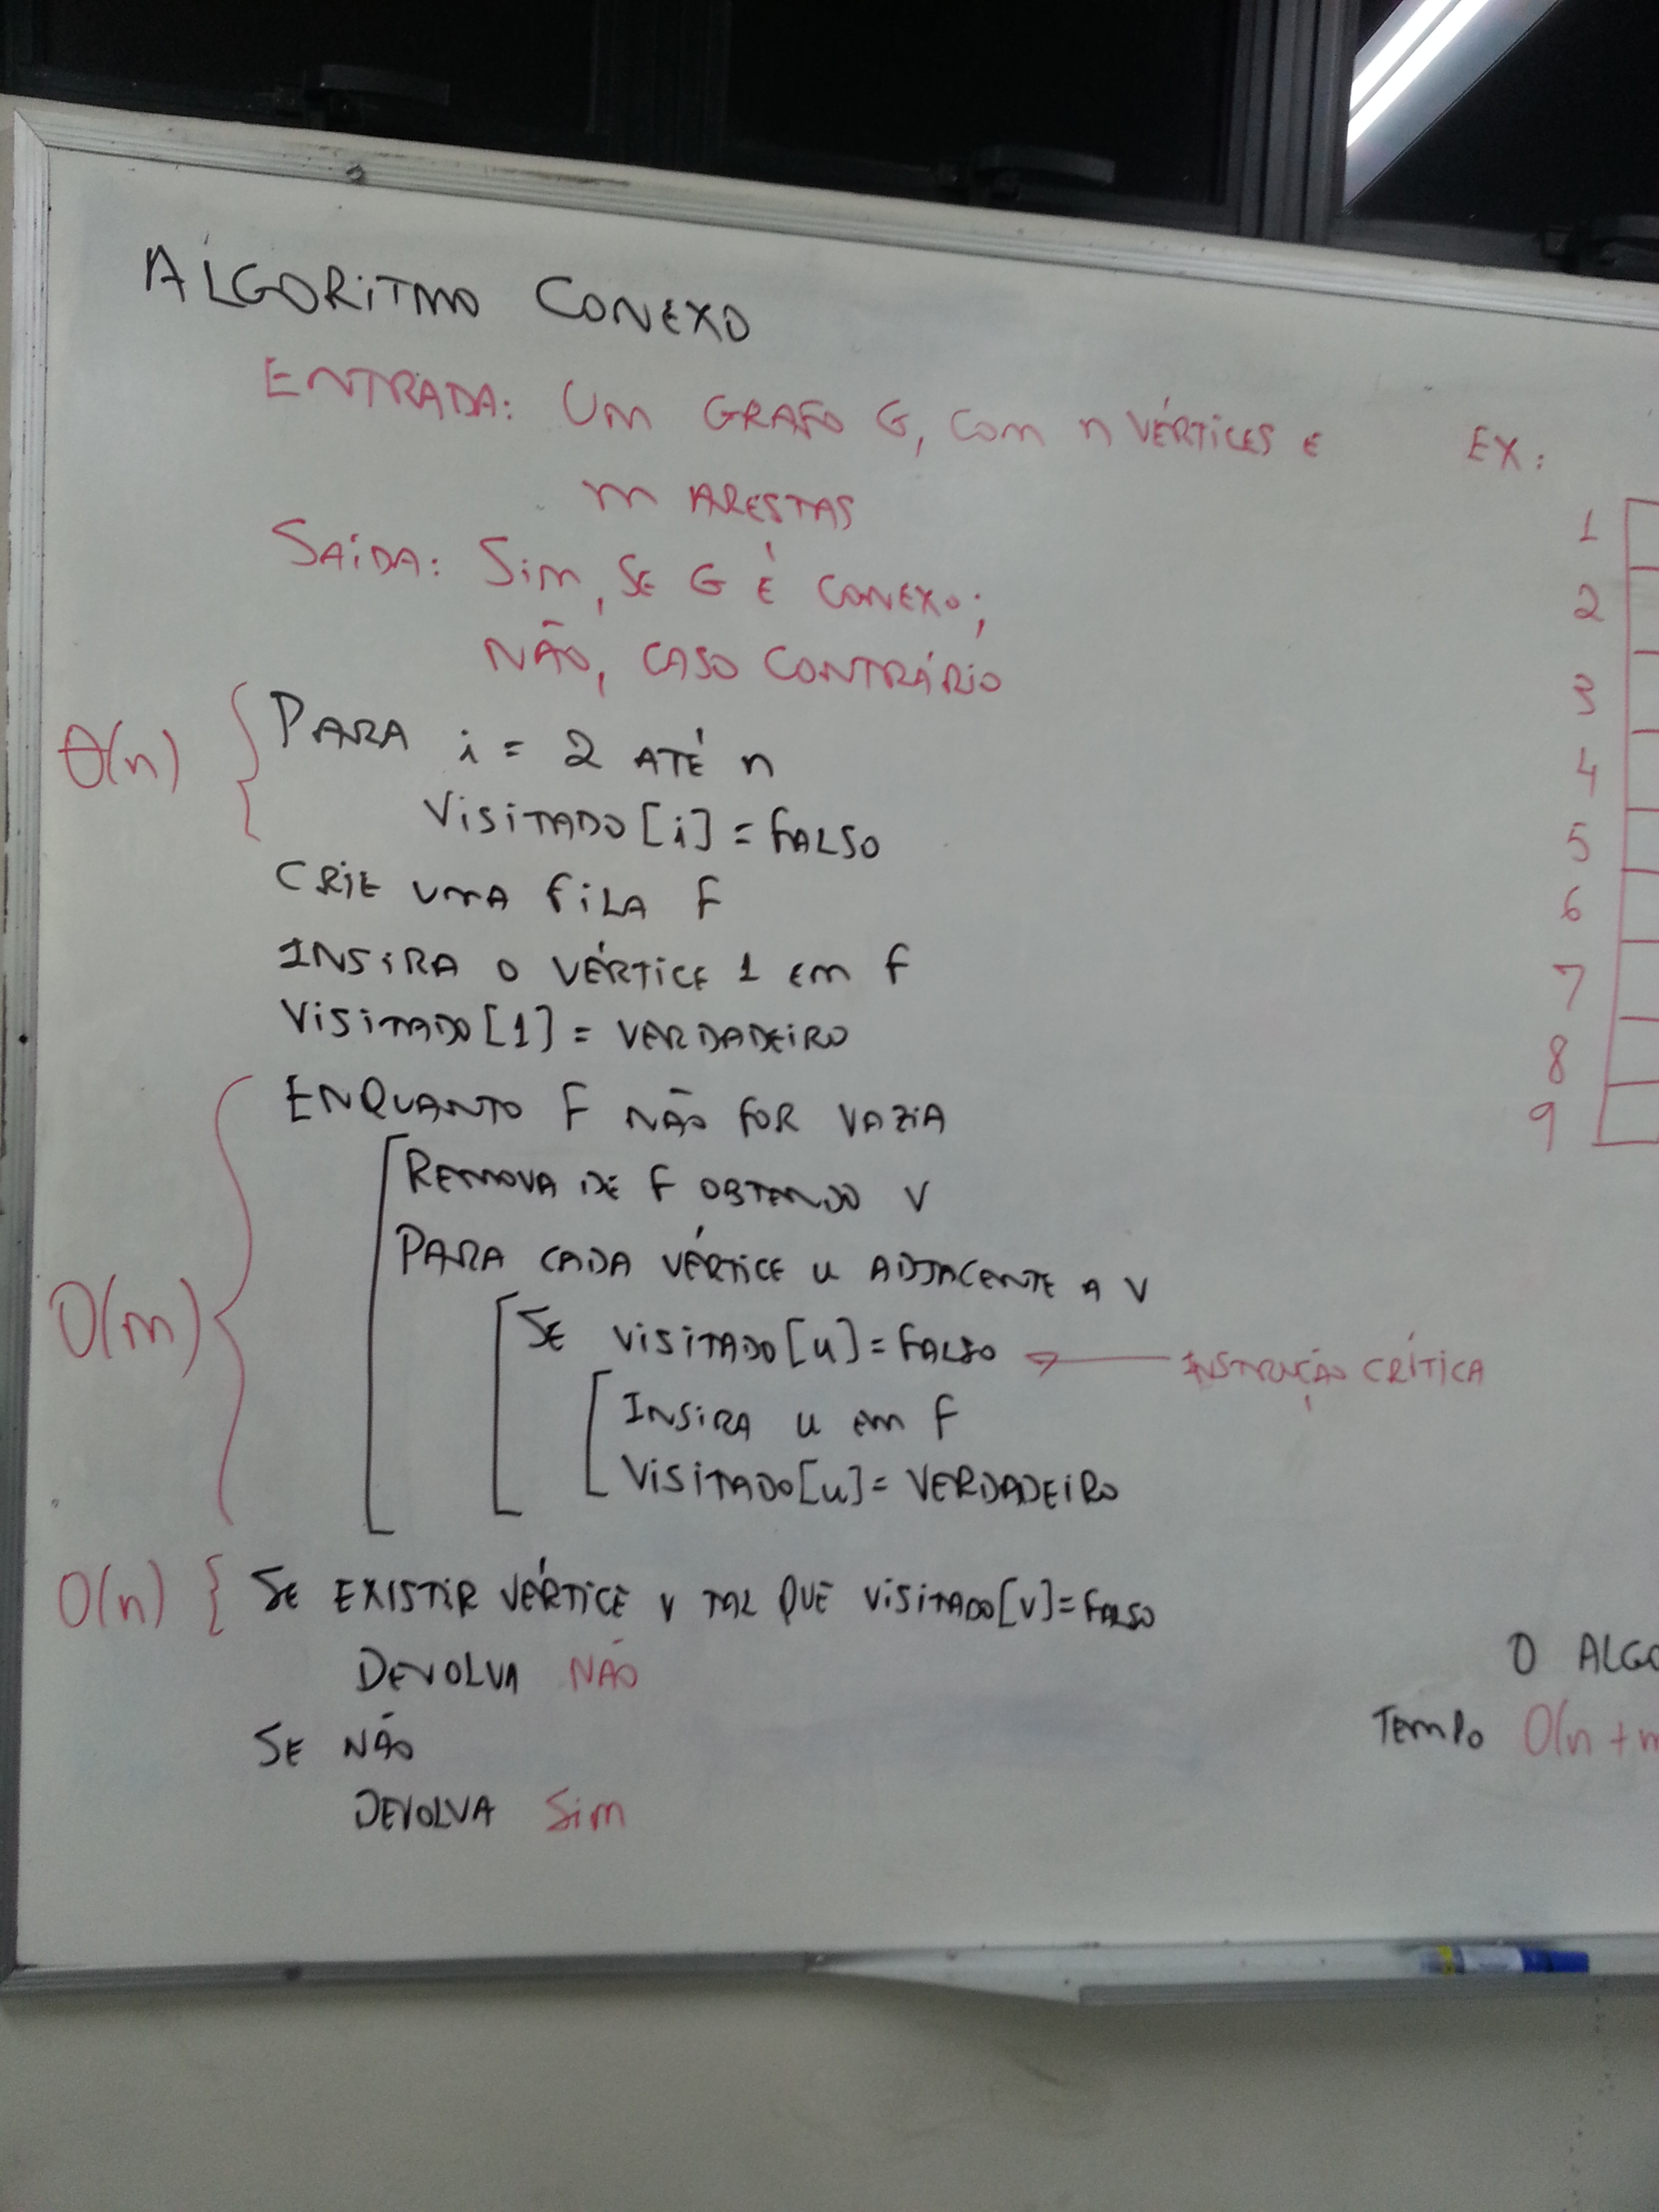 ALGORITMO CONEXO
ENTRADA: UM GRAFO G, COM n VÉRTICES E
m ARESTAS
SAÍDA: SIM, SE G É CONEXO;
NÃO, CASO CONTRÁRIO
θ(n) { PARA i = 2 ATÉ n
VISITADO[i] = FALSO
CRIE UMA FILA F
INSIRA O VÉRTICE 1 EM F
VISITADO[1] = VERDADEIRO
ENQUANTO F NÃO FOR VAZIA
REMOVA DE F OBTENDO V
PARA CADA VÉRTICE u ADJACENTE A V
O(m) { SE VISITADO[u] = FALSO ← INSTRUÇÃO CRÍTICA
INSIRA u EM F
VISITADO[u] = VERDADEIRO
O(n) { SE EXISTIR VÉRTICE V TAL QUE VISITADO[V] = FALSO
DEVOLVA NÃO
SE NÃO
DEVOLVA SIM
EX:
1
2
3
4
5
6
7
8
9
O ALGO
TEMPO O(n+m